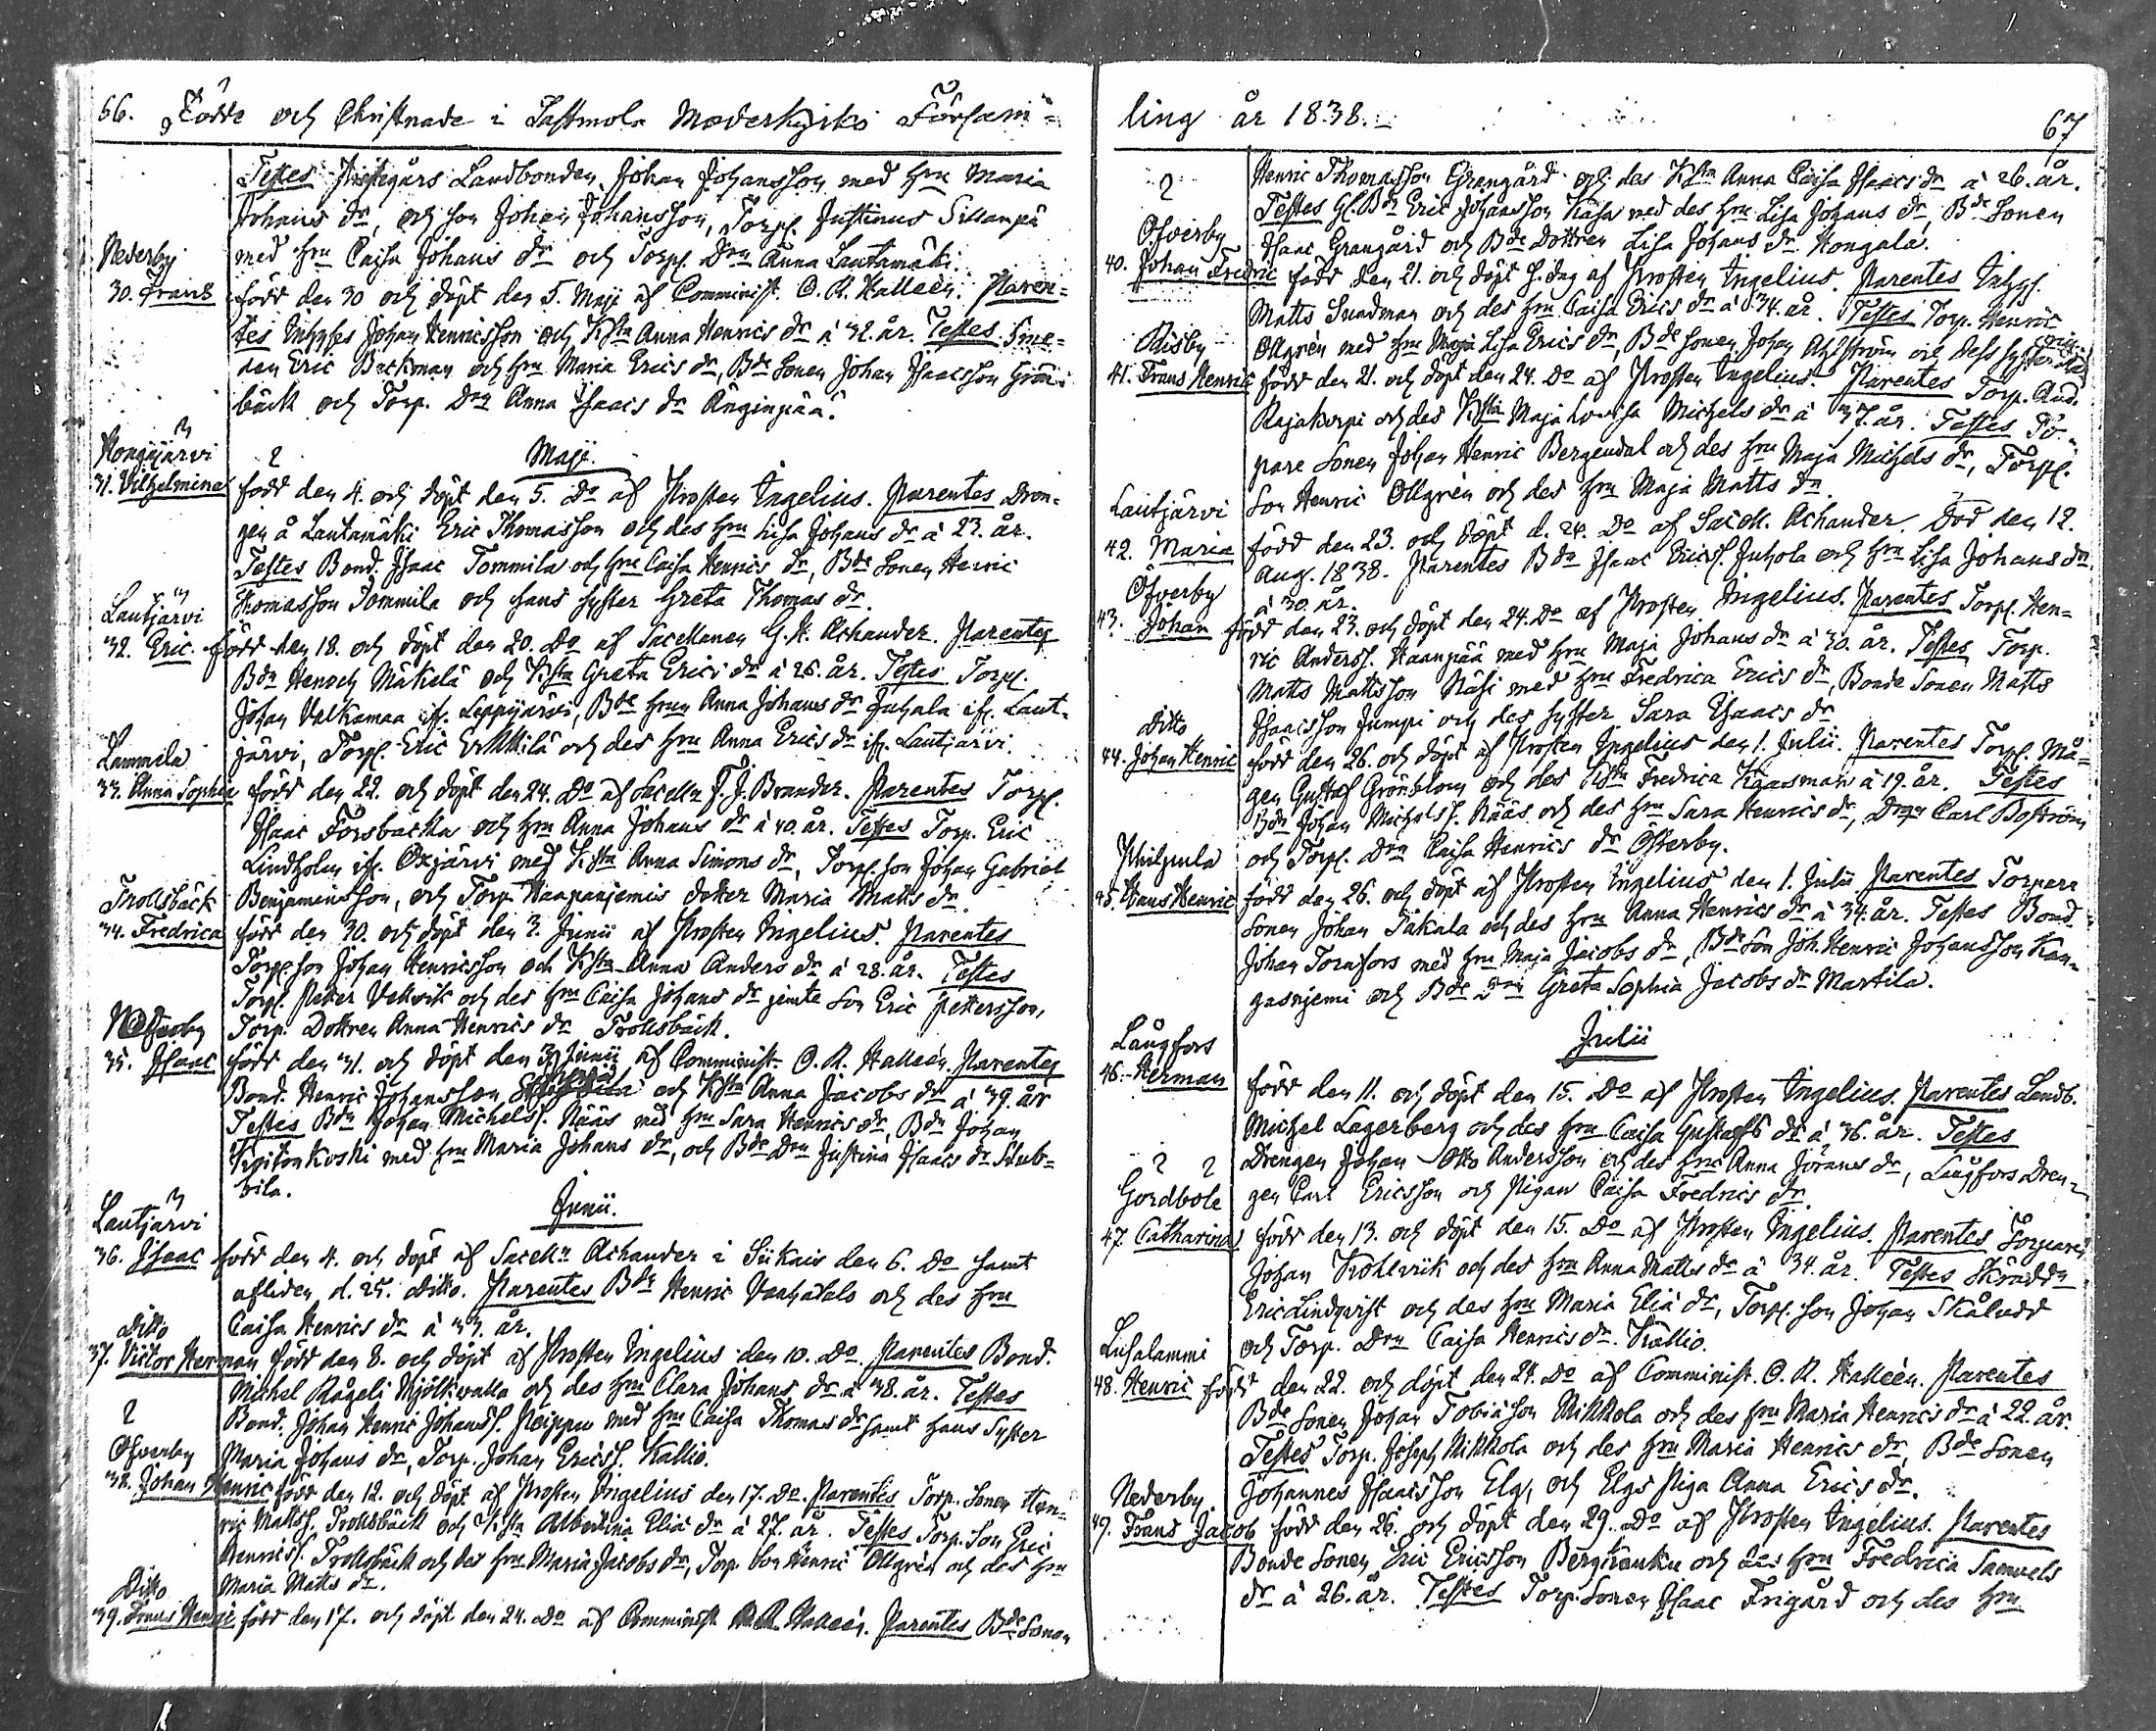 66. Födde och Christnade i Sastmola Moderkyrko Försam=
Testes Landbonden Johan Johansson med Hru Maria
Johans dr, och son Johan Johansson, Torp. Justinus Sillanpä
Nederby
med Hru Caisa Johans dr och Torp. Drn Anna Lautamäki.
30. Frans
född den 30 och döpt den 5. Maji af Comminist. O. R. Halleén. Paren=
tes Inhyses Johan Henricsson och Hstn Anna Henrics dr à 32. år. Testes Sme=
den Eric Backman och Hru Maria Erics dr, Bde Sonen Johan Isacsson Grön=
bäck och Torp. Drn Anna Isaacs dr Änginpää.
Hongijärvi
Maji
31. Vilhelmina
född den 4. och döpt den 5. Do af Prosten Ingelius. Parentes Dren=
gen å Lautamäki Eric Thomasson och des Hru Lisa Johans dr à 23. år.
Testes Bond. Isaac Tommila och Hru Caisa Henrics dr, Bde Sonen Henric
Lautjärvi
Thomasson Tommila och hans syster Greta Thomas dr.
32. Eric
född den 18. och döpt den 20. Do af Sacellanen G. H. Achander. Parentes
Bdn Henoch Mäkelä och Hstn Greta Erics dr à 26. år. Testes Torp.
Johan Valkamaa if. Leppijärvi, Bde Hrun Anna Johans dr Juhala if. Laut=
Lammila
järvi, Torp. Eric Erkkilä och des Hru Anna Erics dr if. Lautjärvi.
33. Anna Sophia
född den 22. och döpt den 24. Do af Sacelln F. J. Brander. Parentes Torp.
Isaac Forsbacka och Hru Anna Johans dr à 40. år. Testes Torp. Eric
Lindholm if. Oxjärvi med Hstn Anna Simons dr, Torp. son Johan Gabriel
Trollsbäck
Benjaminsson, och Torp. Haapanjemis dotter Maria Matts dr.
34. Fredrica
född den 30. och döpt den 3. Junii af Prosten Ingelius. Parentes
Torp. son Johan Henricsson och Hstn Anna Anders dr à 28. år. Testes
Torp. Petter Vallvik och des Hru Caisa Johans dr jemte Son Eric Pettersson,
Torp. Dottren Anna Henrics dr Trollsbäck.
35. Isaac
född den 31. och döpt den 3 Junii af Comminist. O. R. Halleén. Parentes
Bond. Henric Johansson och Hstn Anna Jacobs dr à 39. år
Testes Bdn Johan Michelss. Nääs med Hru Sara Henrics dr, Bdn Johan
med Hru Maria Johans dr, och Bde Drn Justina Isaacs dr Stub=
bila.
Lautjärvi
Junii.
36. Isaac
född den 4. och döpt af Sacelln Achander i Siikais den 6. Do samt
afliden d. 25. ditto. Parentes Bdn Henric Vanhatalo och des Hru
Ditto
Caisa Henrics dr à 33. år.
37. Victor Herman
född den 8. och döpt af Prosten Ingelius den 10. Do. Parentes Bond.
Michel Rågeli Mjölkvalla och des Hru Clara Johans dr à 38. år. Testes
Bond. Johan Henric Johanss. Peippu med Hru Caisa Thomas dr samt hans Syster
Ofverby
Maria Johans dr, Torp. Johan Ericss. Kallio.
38. Johan Henric
född den 12. och döpt af Prosten Ingelius den 17. Do. Parentes Torp. Sonen Hen=
ric Mattss. Trollsbäck och Hstn Albertina Eliä dr à 27. år. Testes Torp. Son Eric
Henricss. Trollsbäck och des Hru Maria Jacobs dr, Torp. Son Henric Ollgrén och des Hru
Ditto
Maria Matts dr.
39. Frans Henric
född den 17. och döpt den 24. Do af Comminist. O. R. Halleén. Parentes Bde Sonen
ling år 1838.
67
Henric Thomasson Grangård och des Hstn Anna Caisa Isaacs dr à 26. år.
Testes Gl. Bdn Eric Johansson Käsa med des Hru Lisa Johans dr, Bde Sonen
Ofverby
Isaac Grangård och Bde Dottren Lisa Johans dr Hongala.
40. Johan Fredric
född den 21. och döpt s. dag af Prosten Ingelius. Parentes Inhys.
Matts Sundman och des Hru Caisa Erics dr à 34. år. Testes Torp. Henric
Ollgrén med Hru Maja Lisa Erics dr, Bde Sonen Johan Ahlström och dess syster
41. Frans Henric
född den 21. och döpt den 24. Do af Prosten Ingelius. Parentes Torp. And.
Rajakorpi och des Hstn Maja Lovisa Michels dr à 37. år. Testes To=
pare Sonen Johan Henric Bergendal och des Hru Maja Michels dr, Torp.
Lautjärvi
Son Henric Ollgrén och des Hru Maja Matts dr
42. Maria
född den 23. och döpt d. 24. Do af Sacell. Achander. Död den 12.
Aug. 1838. Parentes Bdn Isaac Ericss. Juhola och Hru Lisa Johans dr
Öfverby
à 30. år.
43. Johan
född den 23. och döpt den 24. Do af Prosten Ingelius. Parentes Torp. Hen=
ric Anderss. Haanpää med Hru Maja Johans dr à 30. år. Testes Torp.
Matts Mattsson Näsi med Hru Fredrica Erics dr, Bonde Sonen Matts
Ditto
Isaacsson Jumpi och des syster Sara Isaacs dr
44. Johan Henric
född den 26. och döpt af Prosten Ingelius den 1. Julii. Parentes Torp. Må=
gen Gustaf Grönblom och des Hstn Fredrica Kraasman à 19. år. Testes
Bdn Johan Michelss. Nääs och des Hru Sara Henrics dr, Drgn Carl Boström
Philpula
och Torp. Drn Caisa Henrics dr Ofverby.
45. Hans Henric
född den 26. och döpt af Prosten Ingelius den 1. Julii Parentes Torpare
Sonen Johan Täkala och des Hru Anna Henrics dr à 34. år. Testes Bond.
Johan Tornfors med Hru Maja Jacobs dr, Bde Son Joh. Henric Johansson Kan=
gasnjemi och Bde Drn Greta Sophia Jacobs dr Martila.
Långfors
Julii
46. Herman
född den 11. och döpt den 15. Do af Prosten Ingelius. Parentes Landb.
Michel Lagerberg och des Hru Caisa Gustafs dr à 36. år. Testes
Drengen Johan Otto Andersson och des Hru Anna Jörans dr, Långfors Dren=
Gordbole
gen Carl Ericsson och Pigan Caisa Fredrics dr
47. Catharina
född den 13. och döpt den 15. Do af Prosten Ingelius. Parentes Torparen
Johan Krohlvik och des Hru Anna Matts dr à 34. år. Testes Skrädd.
Eric Lindqvist och des Hru Maria Eliä dr, Torp. son Johan Skåludd
Lusalammi
och Torp. Drn Caisa Henrics dr Krållio.
48. Henric
född den 22. och döpt den 24. Do af Comminist. O. R. Halleén. Parentes
Bde Sonen Johan Tobiäson Mikkola och des Hru Maria Henrics dr à 22. år.
Testes Torp. Joseph Mikkola och des Hru Maria Henrics dr, Bde Sonen
Nederby
Johannes Isaacsson Elg, och Elgs Piga Anna Erics dr.
49. Frans Jacob
född den 26. och döpt den 29. Do af Prosten Ingelius. Parentes
Bonde Sonen Eric Ericsson och des Hru Fredrica Samuels
dr à 26. år. Testes Torp. Sonen Isaac Frigård och des Hru